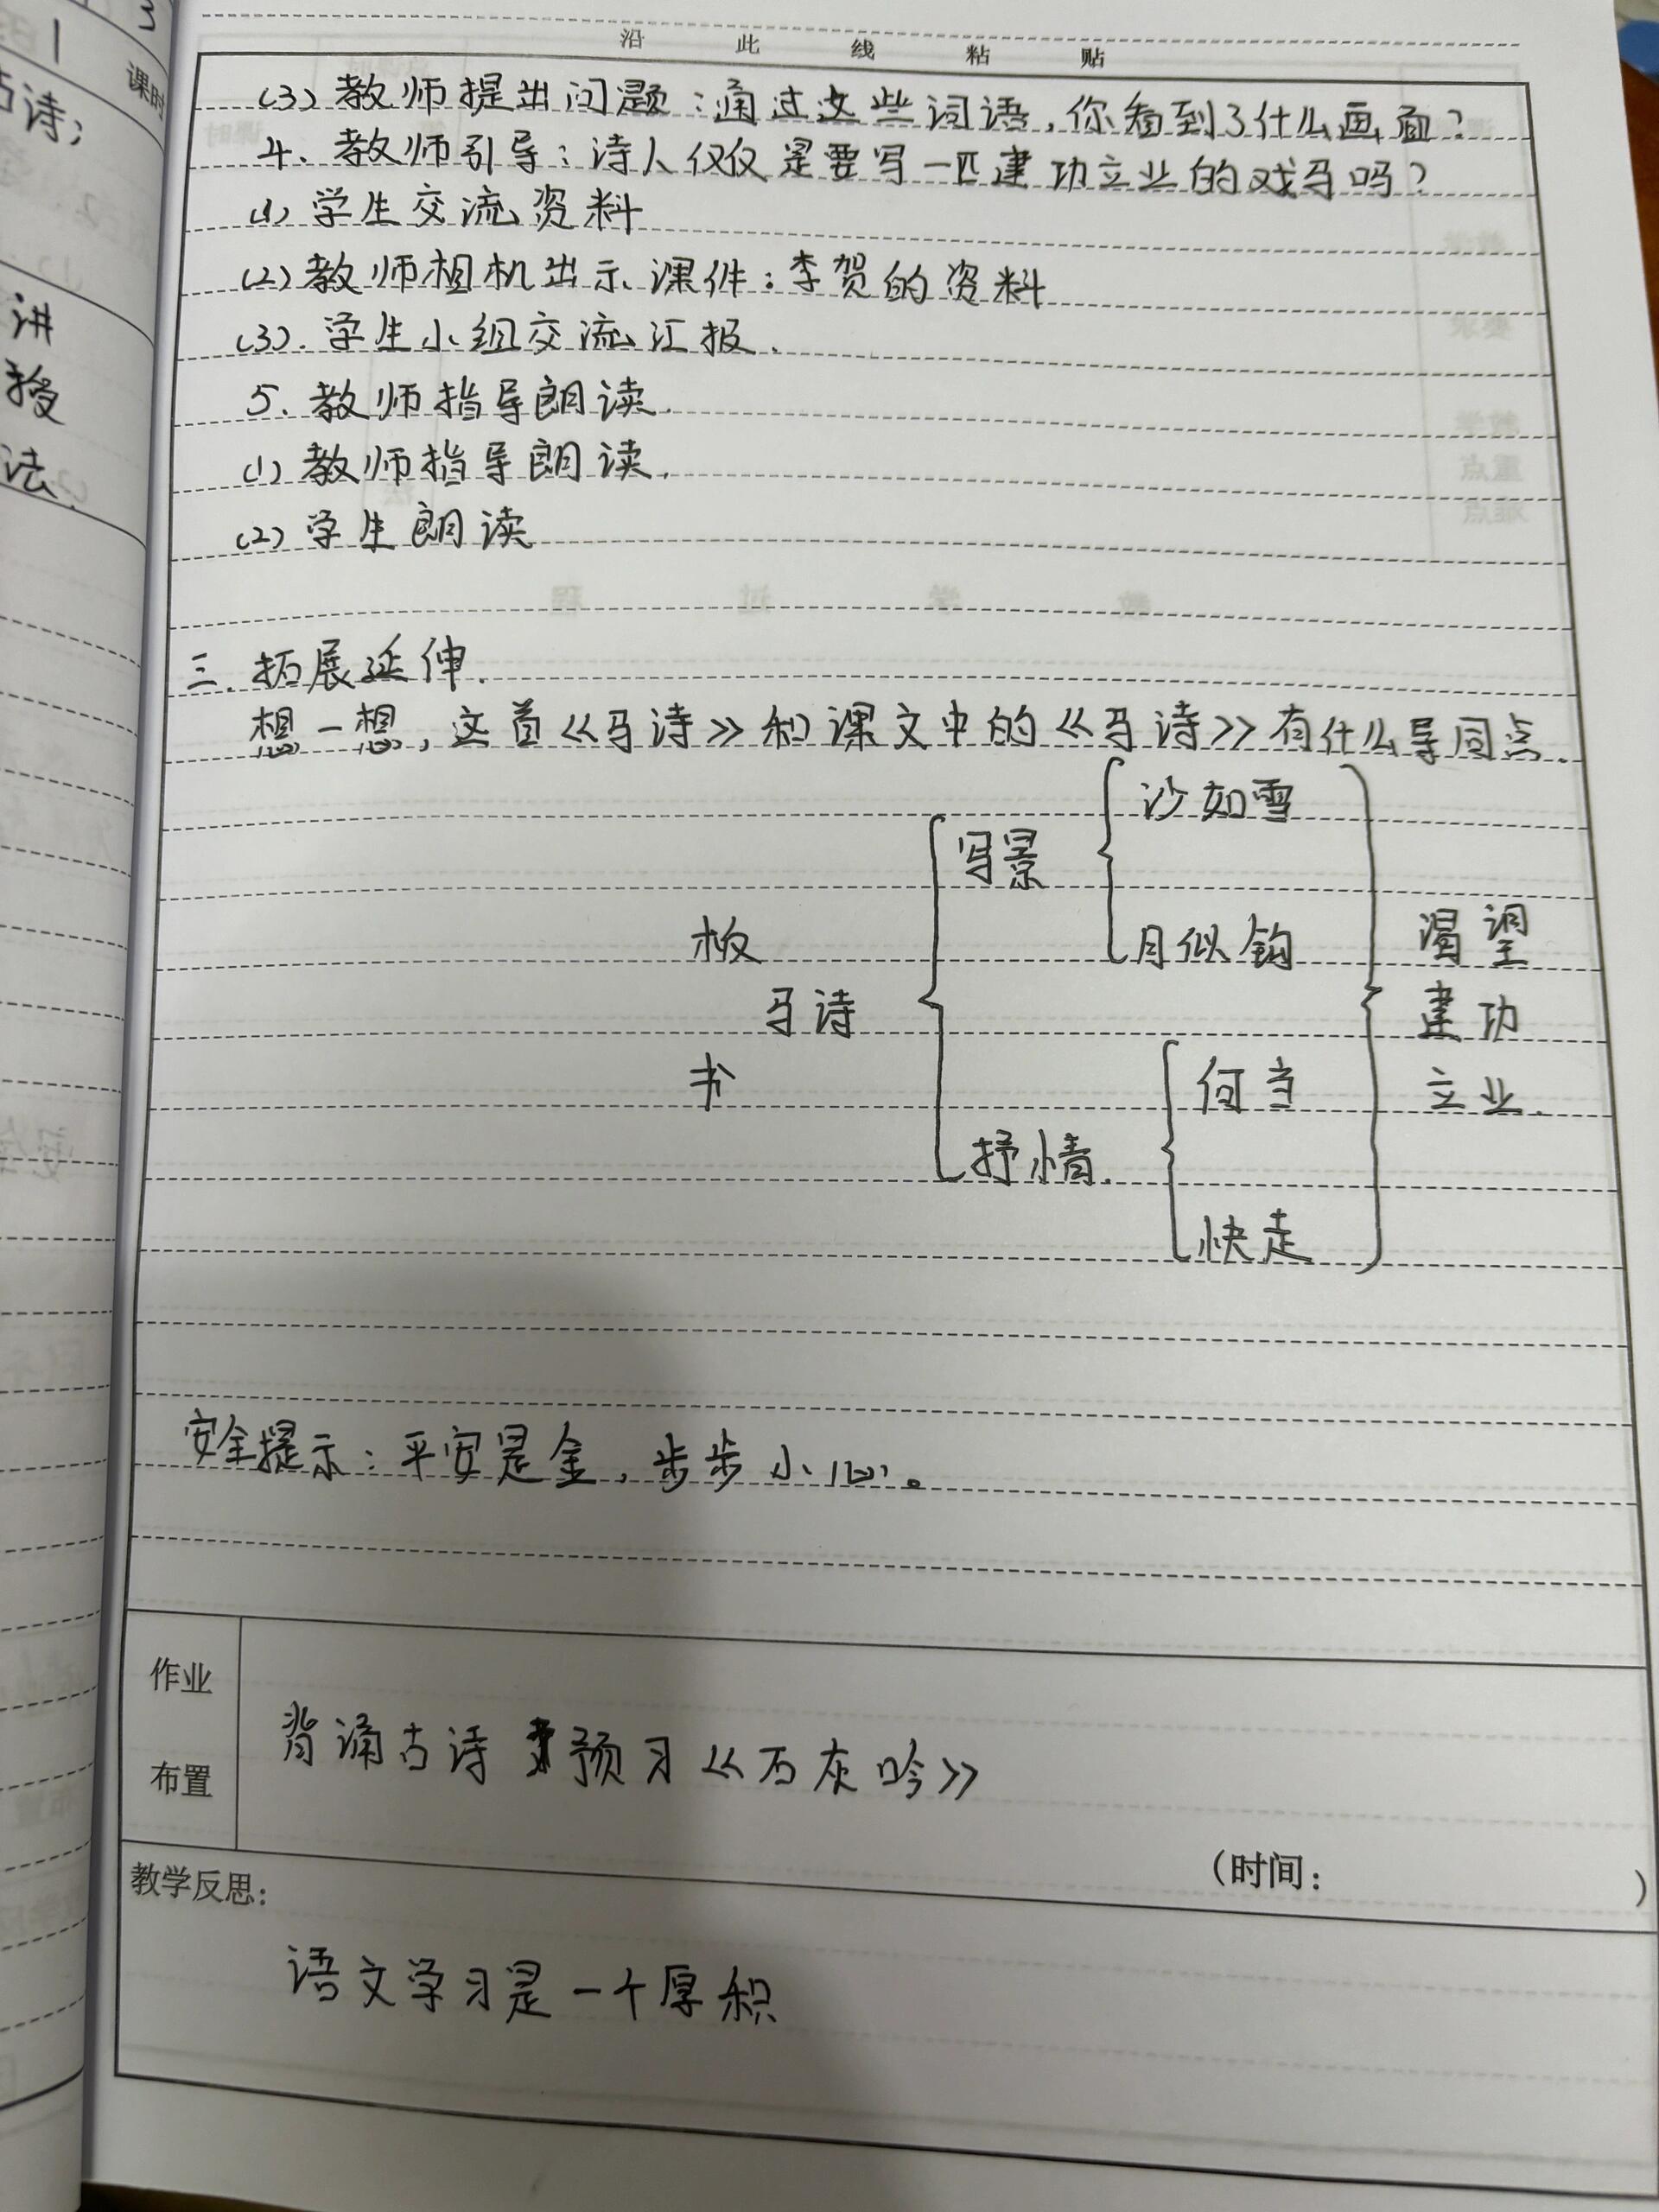 1
3
课时
古诗;
讲
授
法
沿 此 线 粘 贴
(3) 教师提出问题：通过这些词语，你看到了什么画面？
4. 教师引导：诗人仅仅是要写一匹建功立业的战马吗？
(1) 学生交流资料
(2) 教师相机出示课件：李贺的资料
(3). 学生小组交流汇报.
5. 教师指导朗读.
(1) 教师指导朗读.
(2) 学生朗读
三. 拓展延伸.
想一想，这首《马诗》和课文中的《马诗》有什么异同点.
沙如雪
写景
板
月似钩
渴望
马诗
建功
书
何当
立业.
抒情.
快走
安全提示：平安是金，步步小心。
作业
布置
背诵古诗 预习《石灰吟》
(时间: )
教学反思:
语文学习是一个厚积